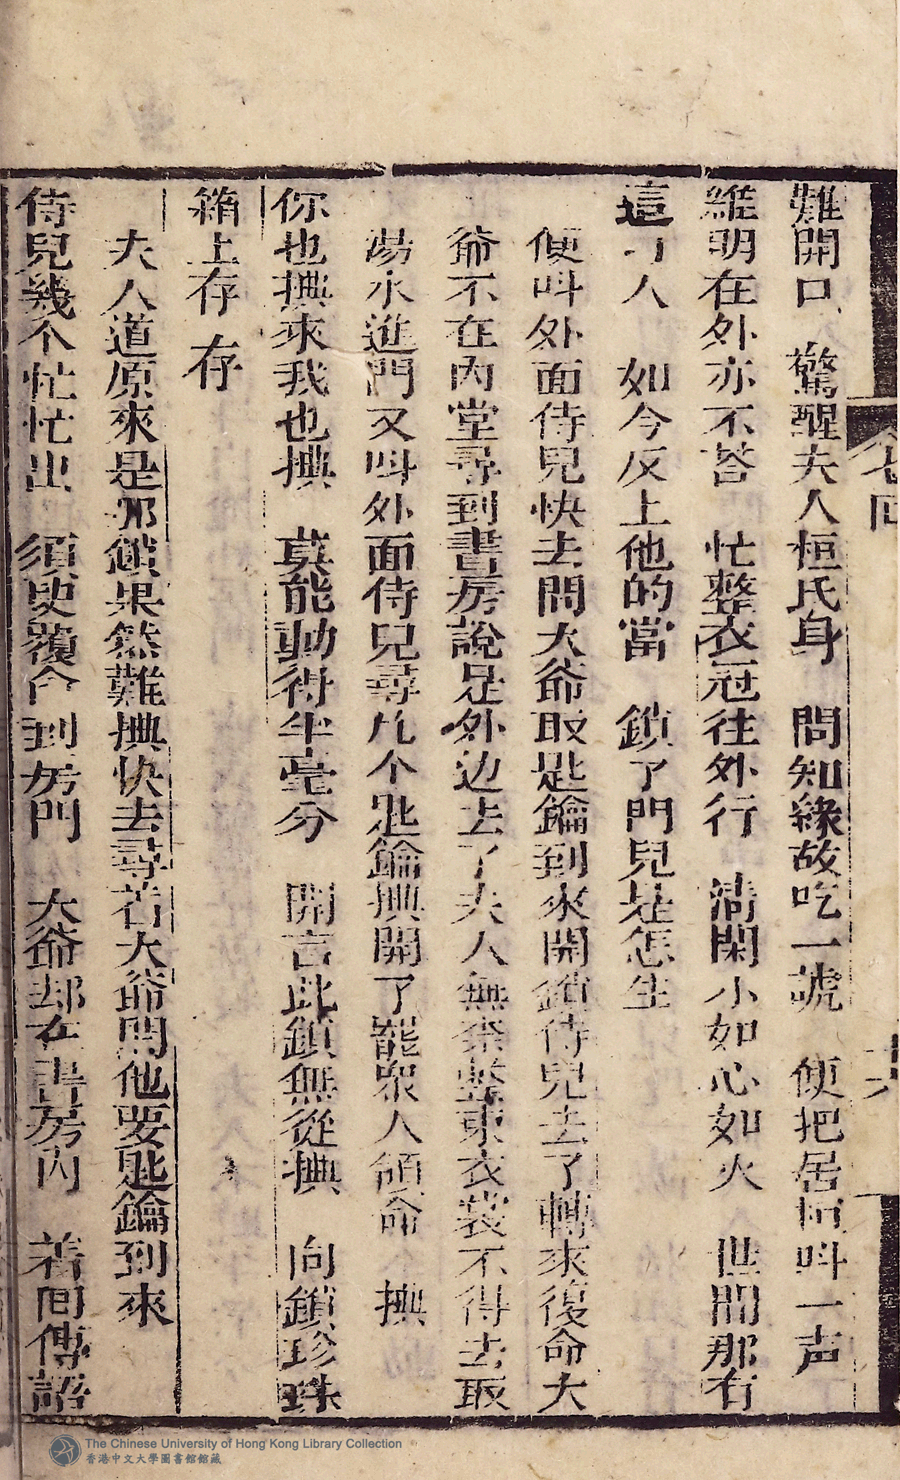 難開口 驚醒夫人桓氏身 問知緣故吃一諕 便把居楨呌一声
維明在外亦不荅 忙整衣冠往外行 清閑小如心如火 世間那有
這刁人 如今反上他的當 鎖了門兒是怎生
便呌外面侍兒快去問大爺取匙鑰到來開鎖侍兒去了轉來復命大
爺不在內堂尋到書房說是外边去了夫人無奈整束衣裳不得去取
湯水進門又呌外面侍兒尋几个匙鑰㨋開了罷眾人領命 㨋
你也㨋來我也㨋 莫能動得半毫分 開言此鎖無從㨋 向鎖珍珠
箱上存 存
夫人道原來是那鎖果然難㨋快去尋若大爺問他要匙鑰到來
侍兒幾个忙忙出 須臾覆合到房門 大爺却在書房內 着同傳語
卷四
十六
The Chinese University of Hong Kong Library Collection
香港中文大學圖書館館藏